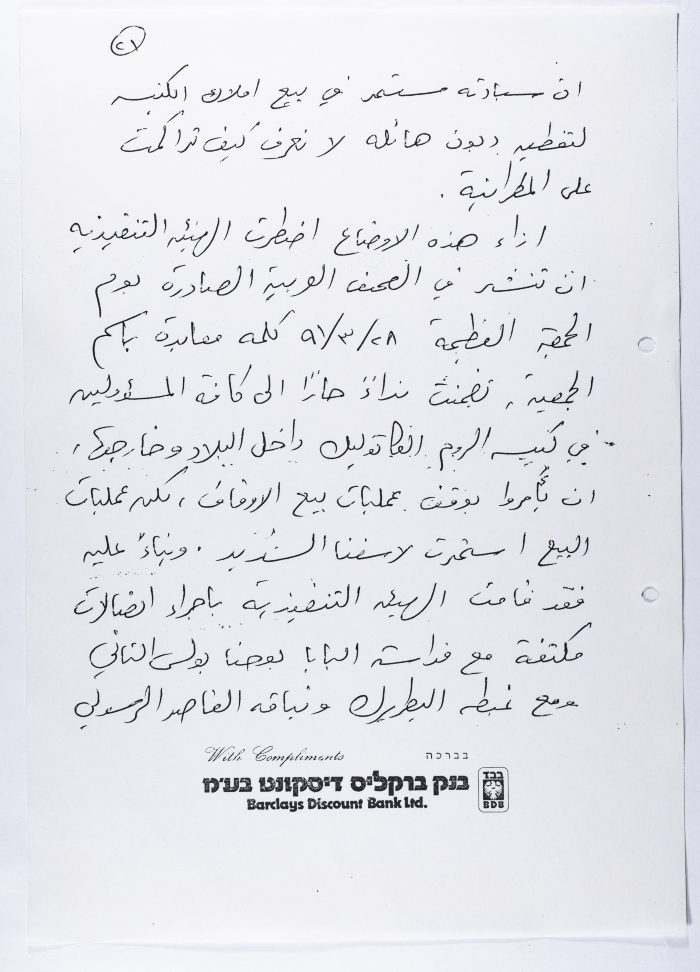 ٢٧
ان سيادته مستمر في بيع املاك الكنيسه
لتغطيه ديون هائله لا نعرف كيف تراكمت
على المطرانية .
ازاء هذه الاوضاع اضطرت الهيئه التنفيذيه
ان تنشر في الصحف العربية الصادرة يوم
الجمعة العظيمة ٩١/٣/٢٨ كلمه معايدة باسم
الجمعية ، تضمنت نداءً حارًا الى كافة المسؤولين
في كنيسه الروم الكاثوليك داخل البلاد وخارجها ،
ان يأمروا بوقف عمليات بيع الاوقاف ، لكن عمليات
البيع استمرت لاسفنا الشديد . وبناءً عليه
فقد قامت الهيئه التنفيذية باجراء اتصالات
مكثفة مع قداسة البابا يوحنا بولس الثاني
ومع غبطه البطريرك ونيافه القاصد الرسولي
With Compliments בברכה
בנק ברקליס דיסקונט בע״מ
Barclays Discount Bank Ltd.
בבד
BDB